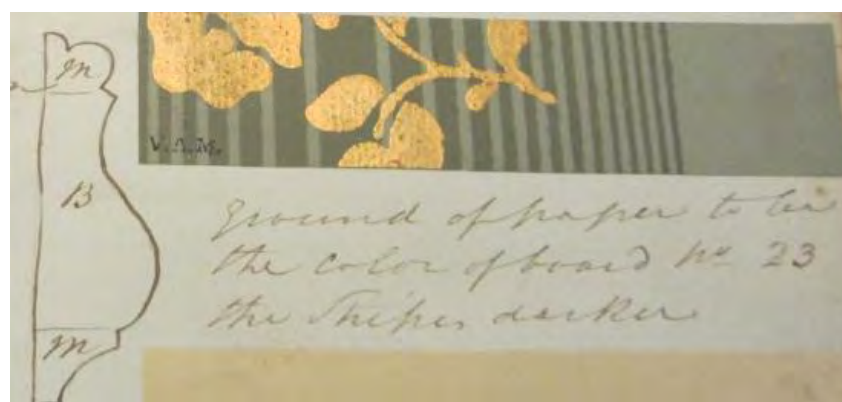 m
B
m
ground of paper to be
the color of board No 23
the Stripes darker